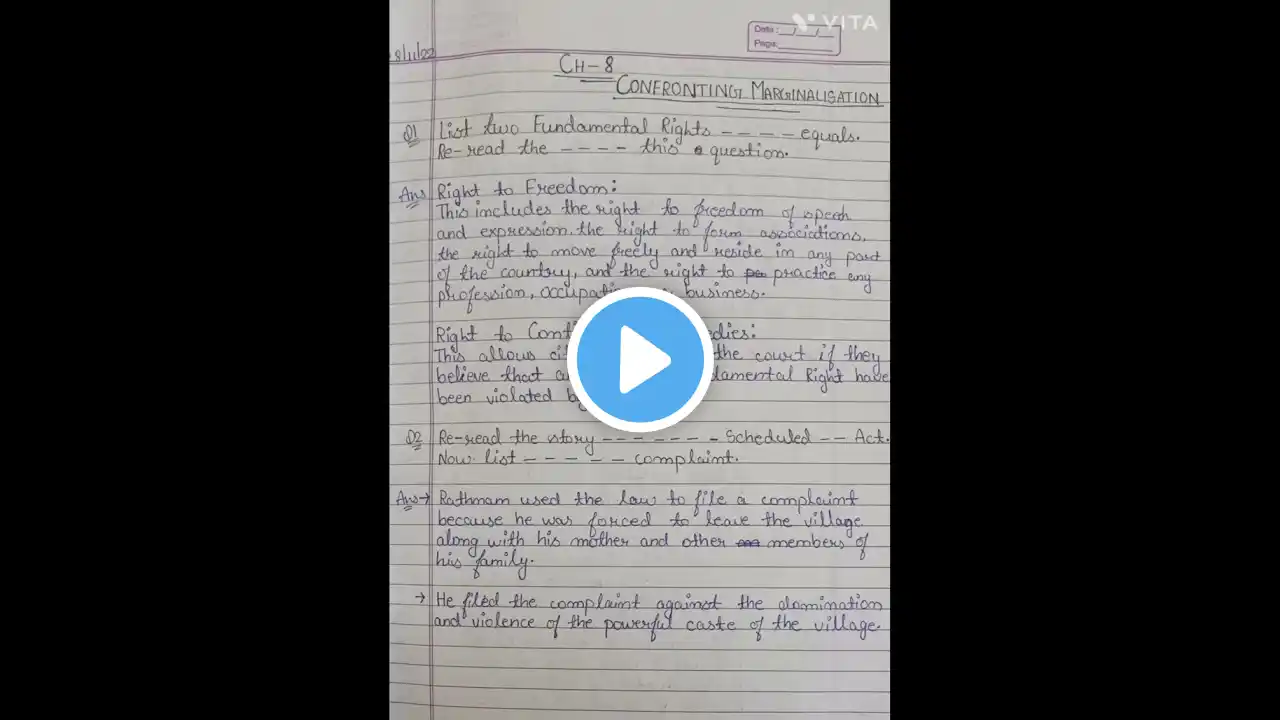 VITA
Date: __/__/__
Page: ______
8/11/22
CH-8
CONFRONTING MARGINALISATION
Q1 List two Fundamental Rights ---- equals.
Re-read the ---- this question.
Ans Right to Freedom:
This includes the right to freedom of speech
and expression. the right to form associations.
the right to move freely and reside in any part
of the country, and the right to practice any
profession, business.
Right to
This allows the court if they
believe that Right have
been violated
Q2 Re-read the story ------- Scheduled -- Act.
Now list ----- complaint.
Ans → Rathmam used the law to file a complaint
because he was forced to leave the village
along with his mother and other members of
his family.
→ He filed the complaint against the domination
and violence of the powerful caste of the village.